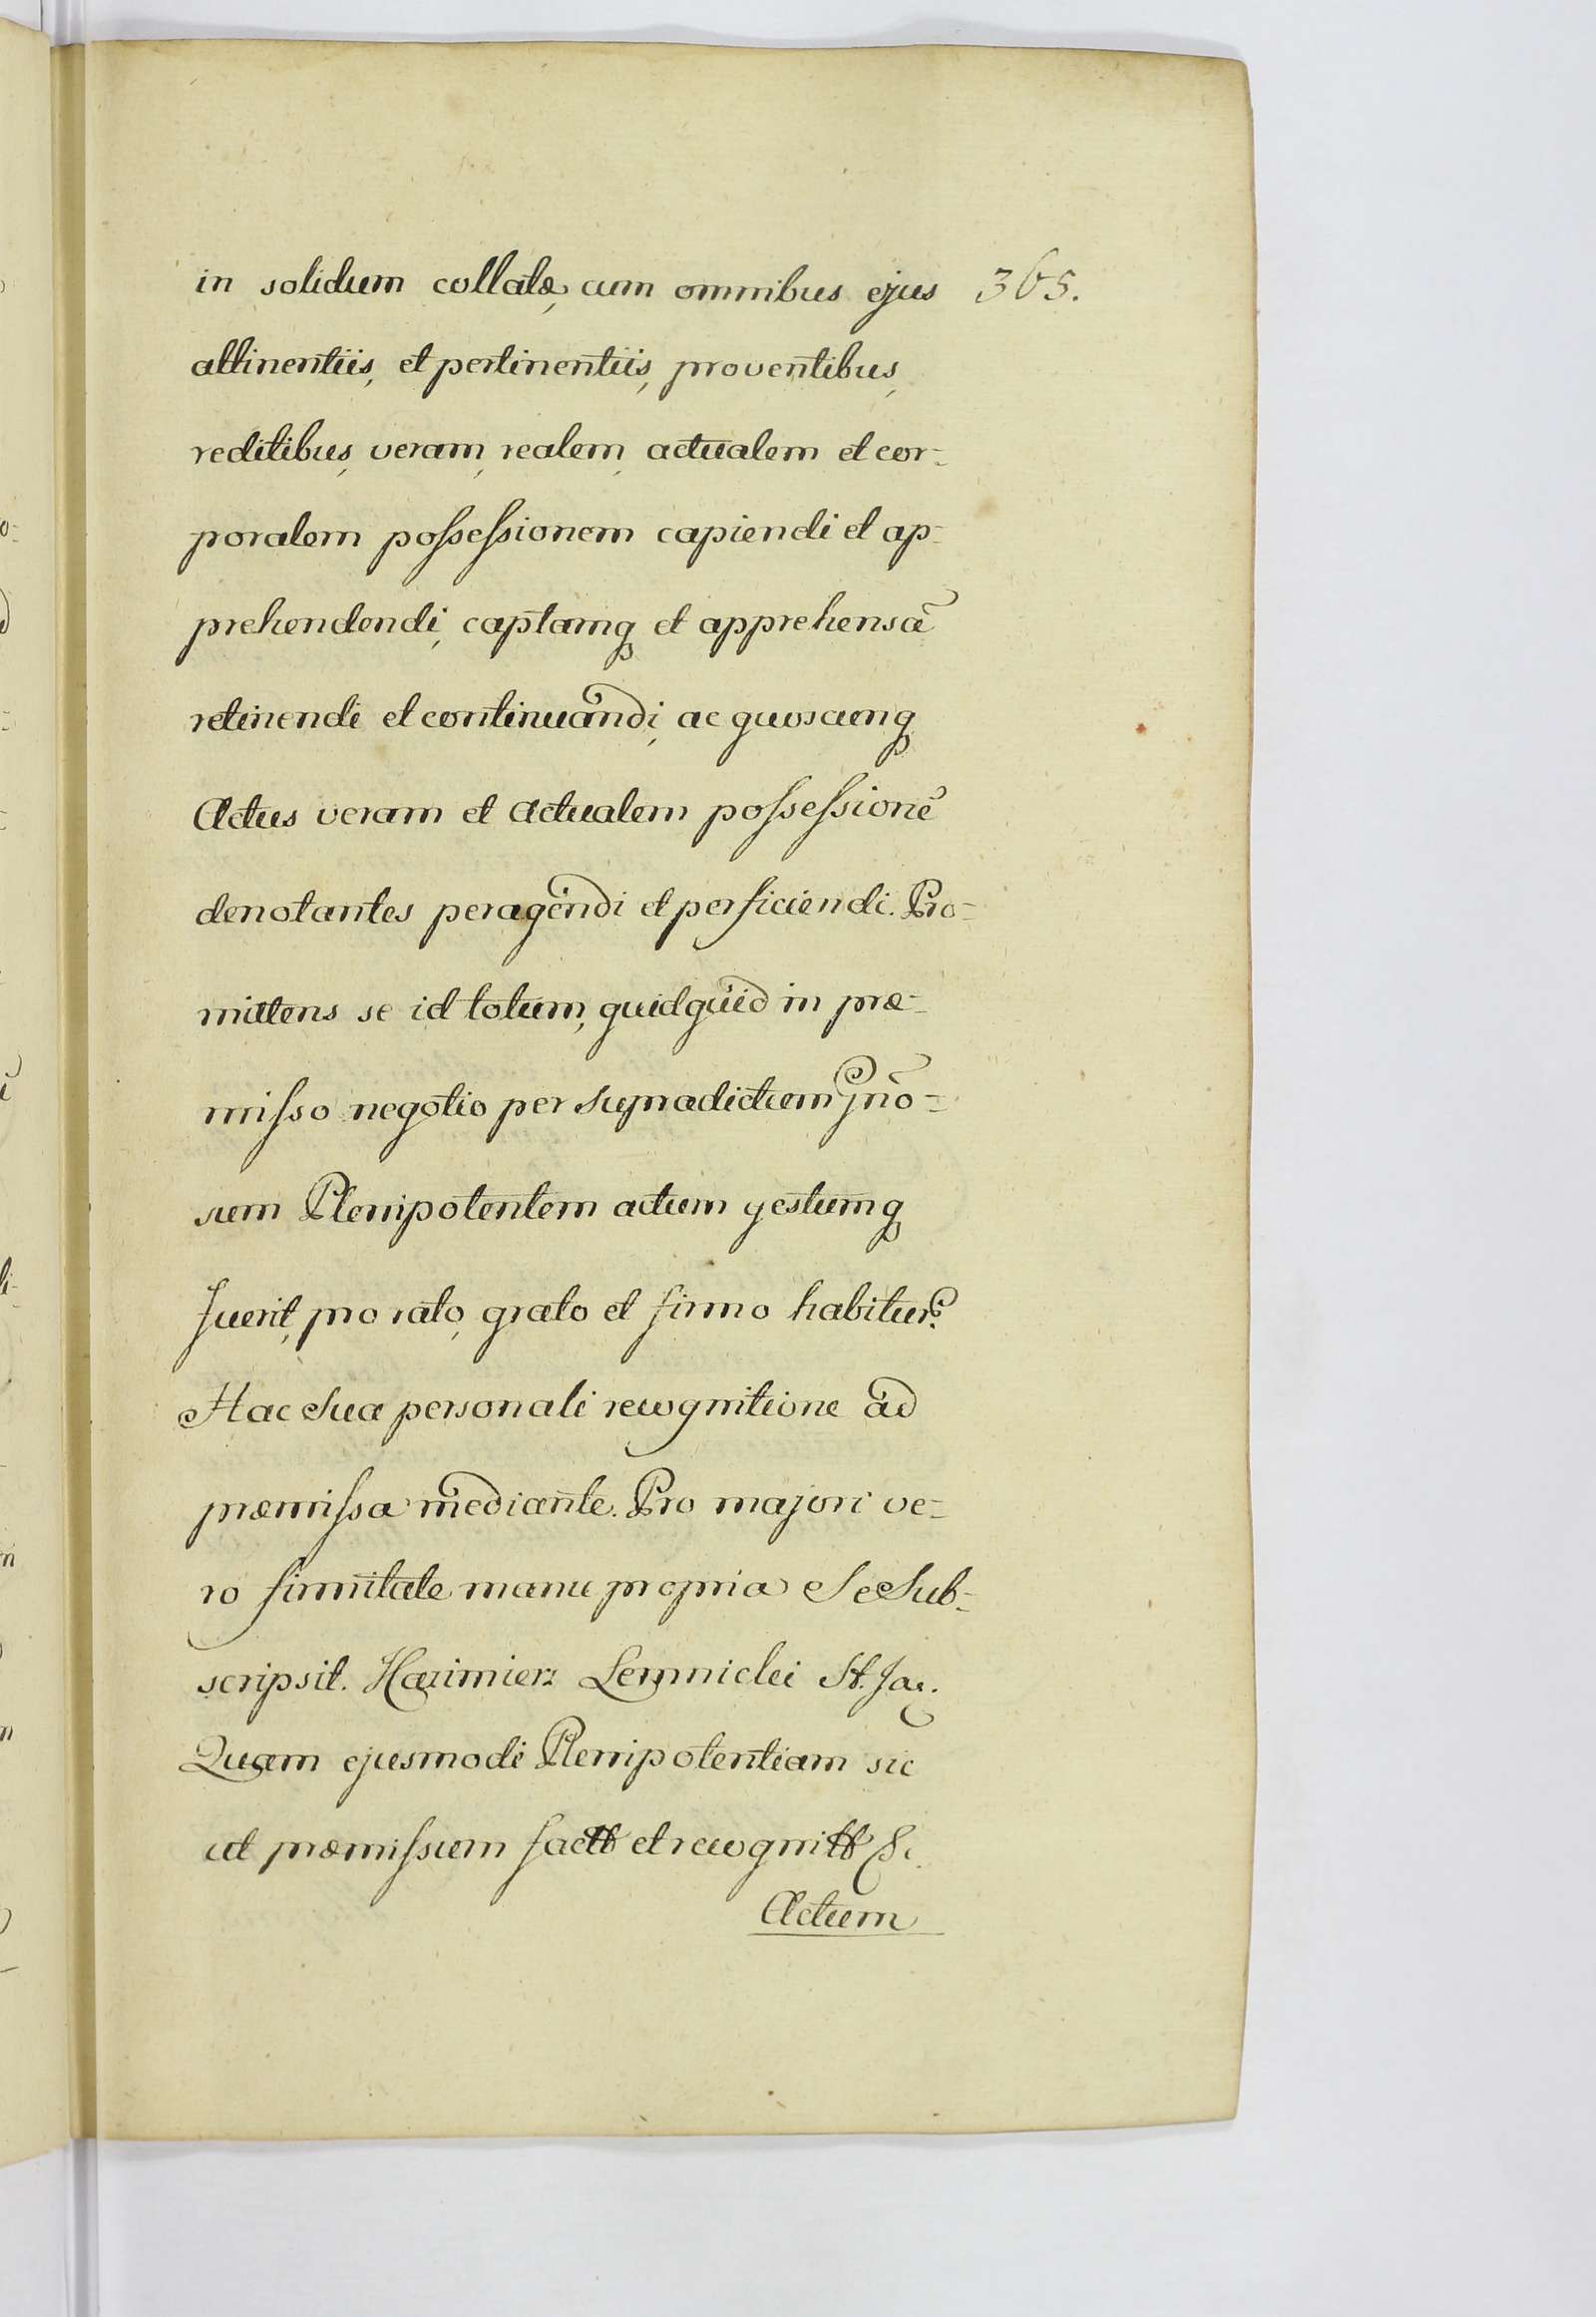 in solidum collatæ, cum omnibus ejus 365.
attinentiis, et pertinentiis, proventibus,
reditibus, veram, realem, actualem et cor-
poralem possessionem capiendi et ap-
prehendendi, captamq et apprehensã
retinendi et continuandi, ac quoscunq
Actus veram et actualem possessionẽ
denotantes peragendi et perficiendi. Pro-
mittens se id totum, quidquid in præ-
misso negotio per supradictum gño-
sum Plenipotentem actum gestumq
fuerit, pro rato, grato et firmo habitur9.
Hac sua personali recognitione ad
præmissa mediante. Pro majori ve-
ro firmitate manu propria Se Sub-
scripsit. Kazimierz St.
Quam ejusmodi Plenipotentiam sic
ut præmissum et &c.
Actum